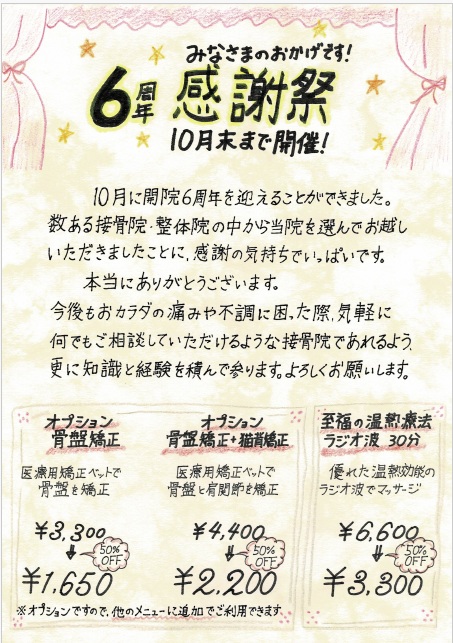 みなさまのおかげです!
6周年 感謝祭
10月末まで開催!
10月に開院6周年を迎えることができました。
数ある接骨院・整体院の中から当院を選んでお越し
いただきましたことに、感謝の気持ちでいっぱいです。
本当にありがとうございます。
今後もおカラダの痛みや不調に困った際、気軽に
何でもご相談していただけるような接骨院であれるよう、
更に知識と経験を積んで参ります。よろしくお願いします。
オプション
骨盤矯正
医療用矯正ベットで
骨盤を矯正
¥3,300
↓
50%
OFF
¥1,650
オプション
骨盤矯正+猫背矯正
医療用矯正ベットで
骨盤と肩関節を矯正
¥4,400
↓
50%
OFF
¥2,200
※オプションですので、他のメニューに追加でご利用できます。
至福の温熱療法
ラジオ波 30分
優れた温熱効能の
ラジオ波でマッサージ
¥6,600
↓
50%
OFF
¥3,300